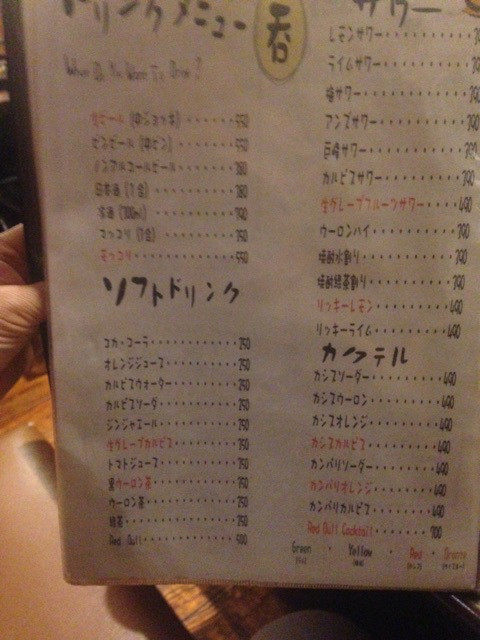 ドリンクメニュー
呑
What Do You Want To Drink?
生ビール (中ジョッキ)・・・・・・550
ビンビール (中ビン)・・・・・・550
ノンアルコールビール・・・・・・380
日本酒 (1合)・・・・・・380
マッコリ (1合)・・・・・・390
ソフトドリンク
コカ・コーラ・・・・・・290
オレンジジュース・・・・・・290
カルピスウォーター・・・・・・290
カルピスソーダ・・・・・・290
ジンジャエール・・・・・・290
生グレープカルピス・・・・・・390
トマトジュース・・・・・・390
黒ウーロン茶・・・・・・390
ウーロン茶・・・・・・290
緑茶・・・・・・290
Red Bull・・・・・・500
サワー
レモンサワー・・・・・・
ライムサワー・・・・・・
梅サワー・・・・・・390
アンズサワー・・・・・・390
巨峰サワー・・・・・・390
カルピスサワー・・・・・・390
生グレープフルーツサワー・・・・490
ウーロンハイ・・・・・・390
焼酎水割り・・・・・・390
焼酎緑茶割り・・・・・・390
リッキーレモン・・・・・・490
リッキーライム・・・・・・490
カクテル
カシスソーダー・・・・・・490
カシスウーロン・・・・・・490
カシスオレンジ・・・・・・490
カシスカルピス・・・・・・490
カンパリソーダー・・・・・・490
カンパリオレンジ・・・・・・490
カンパリカルピス・・・・・・490
Red Bull Cocktail・・・・・・700
Green ・ Yellow ・ Red ・ Bronze